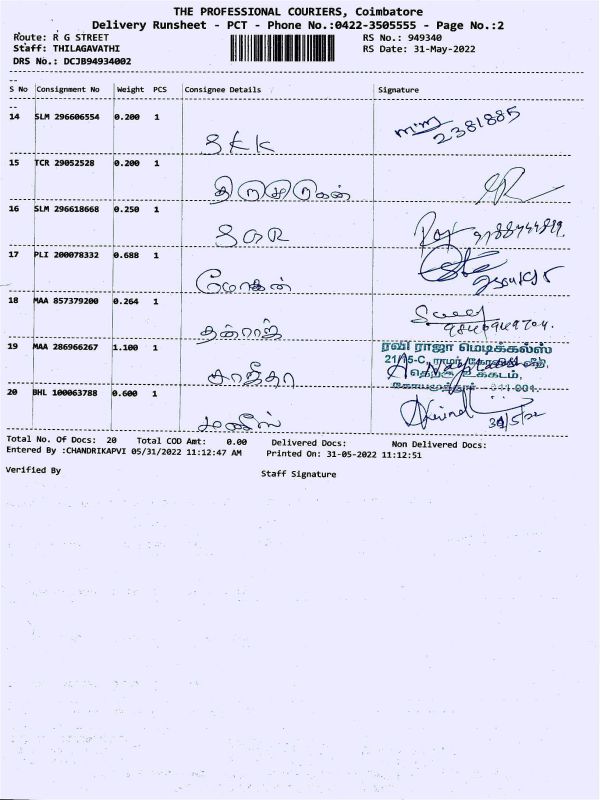 THE PROFESSIONAL COURIERS, Coimbatore
Delivery Runsheet - PCT - Phone No.:0422-3505555 - Page No.:2
Route: R G STREET
RS No.: 949340
Staff: THILAGAVATHI
RS Date: 31-May-2022
DRS No.: DCJB94934002
S No Consignment No Weight PCS Consignee Details Signature
14 SLM 296606554 0.200 1
SKK 2381885
15 TCR 29052528 0.200 1
16 SLM 296618668 0.250 1
17 PLI 200078332 0.688 1
மோகன்
18 MAA 857379200 0.264 1
19 MAA 286966267 1.100 1
ரவி ராஜா மெடிக்கல்ஸ்
21/15-C, ராமர் கோவில் வீதி,
தெற்கு உக்கடம்,
கோயமுத்தூர் - 641 001.
20 BHL 100063788 0.600 1
Total No. Of Docs: 20 Total COD Amt: 0.00 Delivered Docs: Non Delivered Docs:
Entered By :CHANDRIKAPVI 05/31/2022 11:12:47 AM Printed On: 31-05-2022 11:12:51
Verified By
Staff Signature